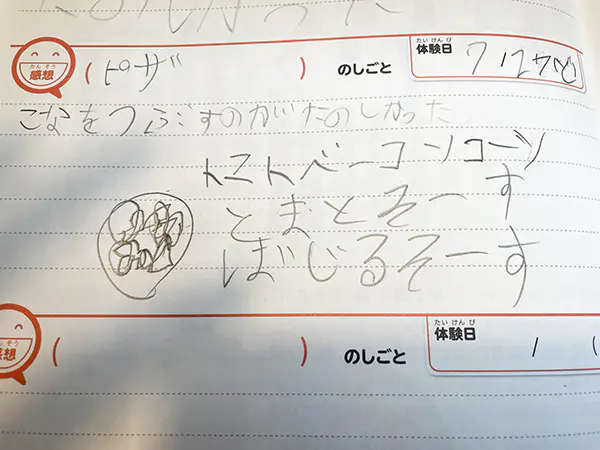 かんそう
感想
(ピザ)のしごと
たいけんび
体験日
こなをつぶすのがたのしかった
トマトベーコンコーン
とまとそーす
ばじるそーす
そう
感想
( )のしごと
たいけんび
体験日 / (